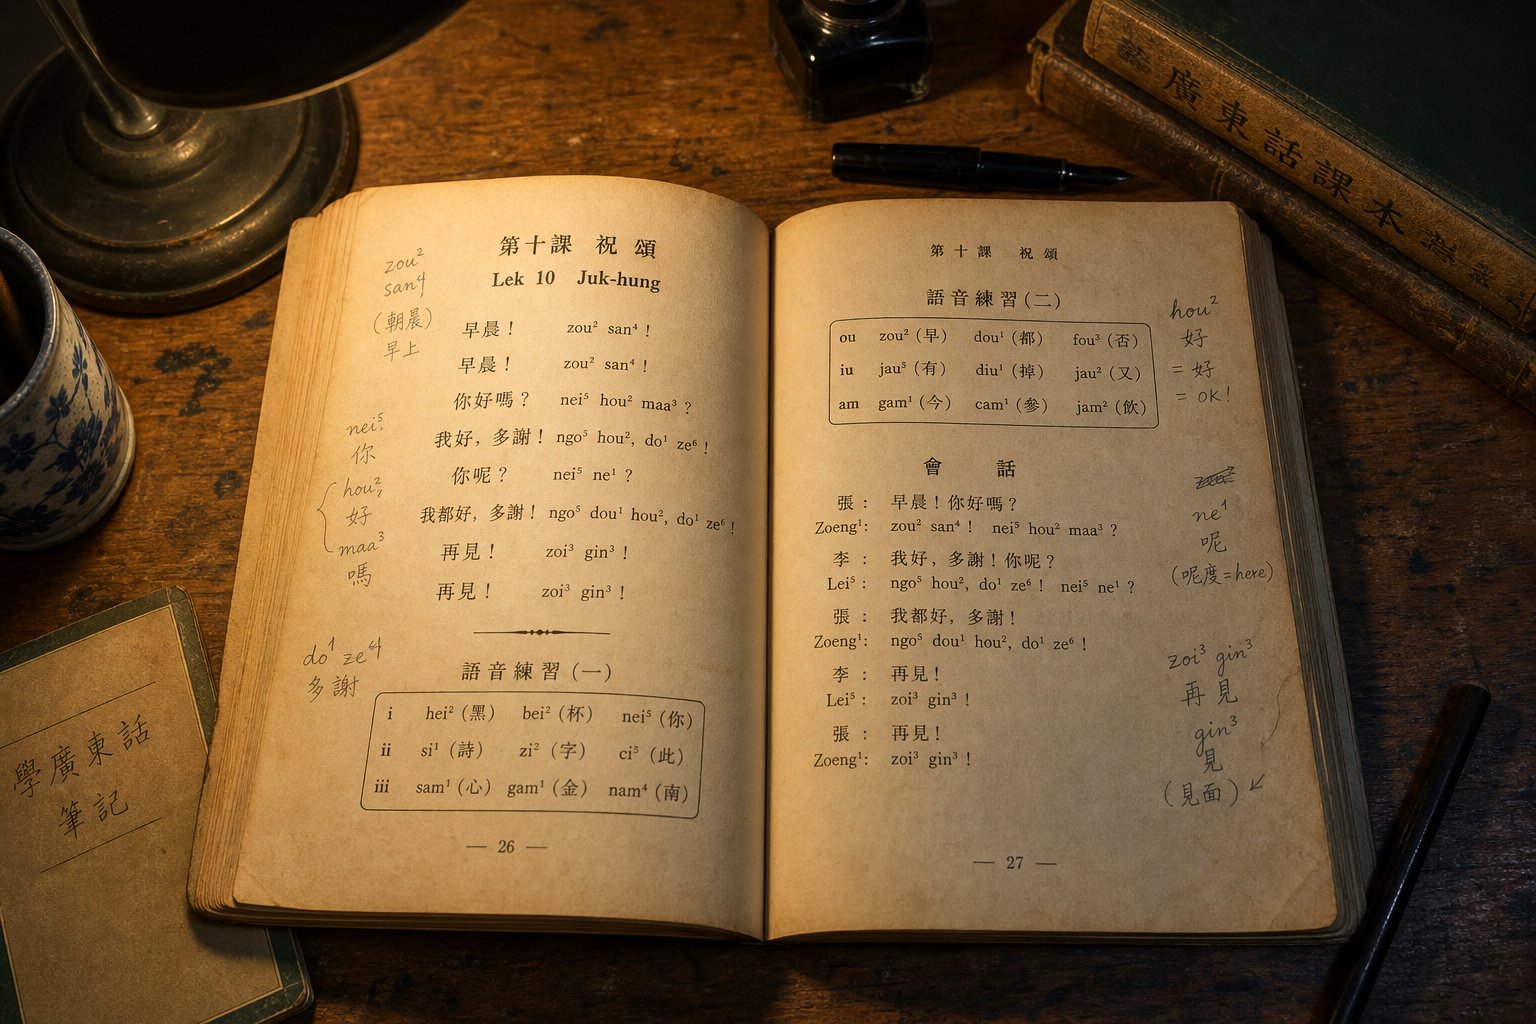 第十課 祝頌
Lek 10 Juk-hung
早晨！ zou² san⁴ !
早晨！ zou² san⁴ !
你好嗎？ nei⁵ hou² maa³ ?
我好，多謝！ ngo⁵ hou², do¹ ze⁶ !
你呢？ nei⁵ ne¹ ?
我都好，多謝！ ngo⁵ dou¹ hou², do¹ ze⁶ !
再見！ zoi³ gin³ !
再見！ zoi³ gin³ !
語音練習(一)
i hei² (黑) bei² (杯) nei⁵ (你)
ii si¹ (詩) zi² (字) ci⁵ (此)
iii sam¹ (心) gam¹ (金) nam⁴ (南)
— 26 —
zou²
san⁴
(朝晨)
早上
nei⁵
你
hou²
好
maa³
嗎
do¹ ze⁴
多謝
第十課 祝頌
語音練習(二)
ou zou² (早) dou¹ (都) fou³ (否)
iu jau⁵ (有) diu¹ (掉) jau² (又)
am gam¹ (今) cam¹ (參) jam² (飲)
會話
張： 早晨！你好嗎？
Zoeng¹: zou² san⁴ ! nei⁵ hou² maa³ ?
李： 我好，多謝！你呢？
Lei⁵: ngo⁵ hou², do¹ ze⁶ ! nei⁵ ne¹ ?
張： 我都好，多謝！
Zoeng¹: ngo⁵ dou¹ hou², do¹ ze⁶ !
李： 再見！
Lei⁵: zoi³ gin³ !
張： 再見！
Zoeng¹: zoi³ gin³ !
— 27 —
hou²
好
= 好
= OK!
ne¹
呢
(呢度=here)
zoi³ gin³
再見
gin³
見
(見面)
廣東話課本
學廣東話
筆記